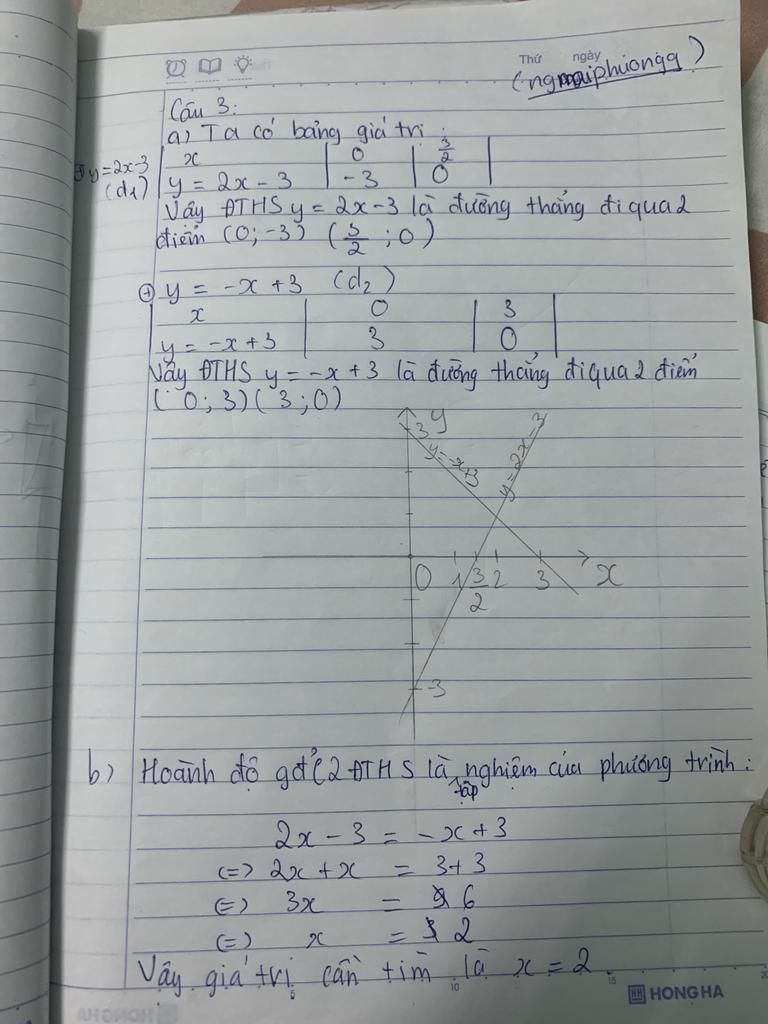 Thứ ngày
(ngmaiphuongg)
Câu 3:
a) Ta có bảng giá trị:
+) y=2x-3
(d1)
x | 0 | 3/2
y = 2x - 3 | -3 | 0
Vậy ĐTHS y = 2x-3 là đường thẳng đi qua 2
điểm (0; -3) (3/2 ; 0)
+) y = -x +3 (d2)
x | 0 | 3
y = -x +3 | 3 | 0
Vậy ĐTHS y = -x +3 là đường thẳng đi qua 2 điểm
( 0; 3) ( 3 ; 0)
y
3
y=-x+3
y=2x-3
0 1 3/2 2 3 x
-3
b) Hoành độ gđ 2 ĐTHS là tập nghiệm của phương trình:
2x - 3 = -x + 3
<=> 2x + x = 3+3
<=> 3x = 6
<=> x = 2
Vậy giá trị cần tìm là x = 2.
5 10 15 20
HH HONG HA